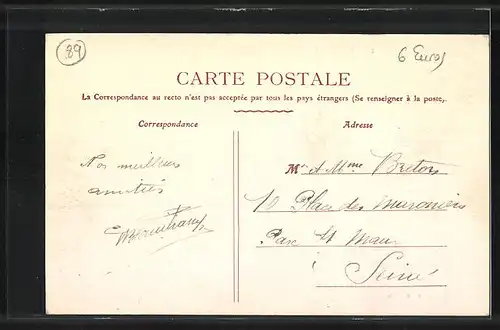 89
6 Euros
CARTE POSTALE
La Correspondance au recto n'est pas acceptée par tous les pays étrangers (Se renseigner à la poste).
Correspondance
Adresse
Nos meilleurs
amitiés
Mr et Mme Breton
10 Place des marronniers
Parc St Maur
Seine